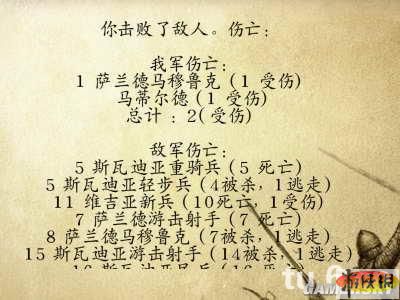 你击败了敌人。伤亡:
我军伤亡:
1 萨兰德马穆鲁克 (1 受伤)
马蒂尔德 (1 受伤)
总计 : 2(受伤)
敌军伤亡:
5 斯瓦迪亚重骑兵 (5 死亡)
5 斯瓦迪亚轻步兵 (4被杀,1逃走)
11 维吉亚新兵 (10死亡,1受伤)
7 萨兰德游击射手 (7 死亡)
8 萨兰德马穆鲁克 (7被杀,1逃走)
15 斯瓦迪亚游击射手 (14被杀,1逃走)